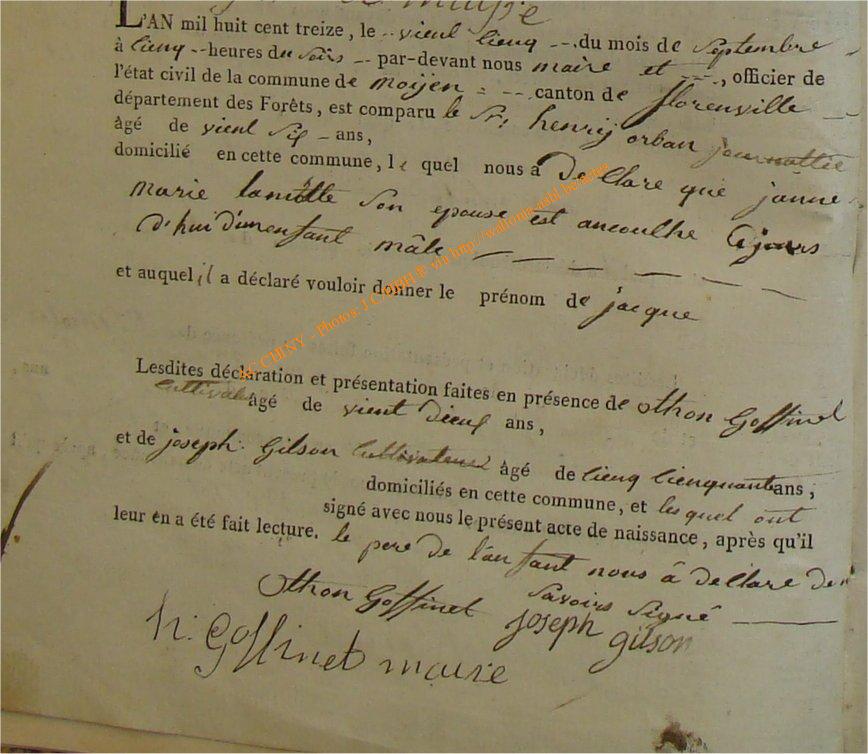 L'AN mil huit cent treize, le vient cienq du mois de septembre
à cienq heures du soirs par-devant nous maire et , officier de
l'état civil de la commune de moijen canton de florenville
département des Forêts, est comparu le Sr. henrij orban journallie
âgé de vient six ans,
domicilié en cette commune, le quel nous a Declare que janne
marie lamotte son epouse est ancoulhe
d'hui d'un enfant mâle
et auquel il a déclaré vouloir donner le prénom de jacque
Lesdites déclaration et présentation faites en présence de othon Goffinel
cultivateur âgé de vient dieux ans,
et de joseph Gilson cultivateur âgé de cienq cienquant ans,
domiciliés en cette commune, et lesquel ont
signé avec nous le présent acte de naissance, après qu'il
leur en a été fait lecture. le pere de l'anfant nous â declare de
savoirs signé
Othon Goffinel joseph gilson
h: Goffinet maire
AC CHINY - Photos J.CARDH ® via http://wallonia-asbl.be/actes